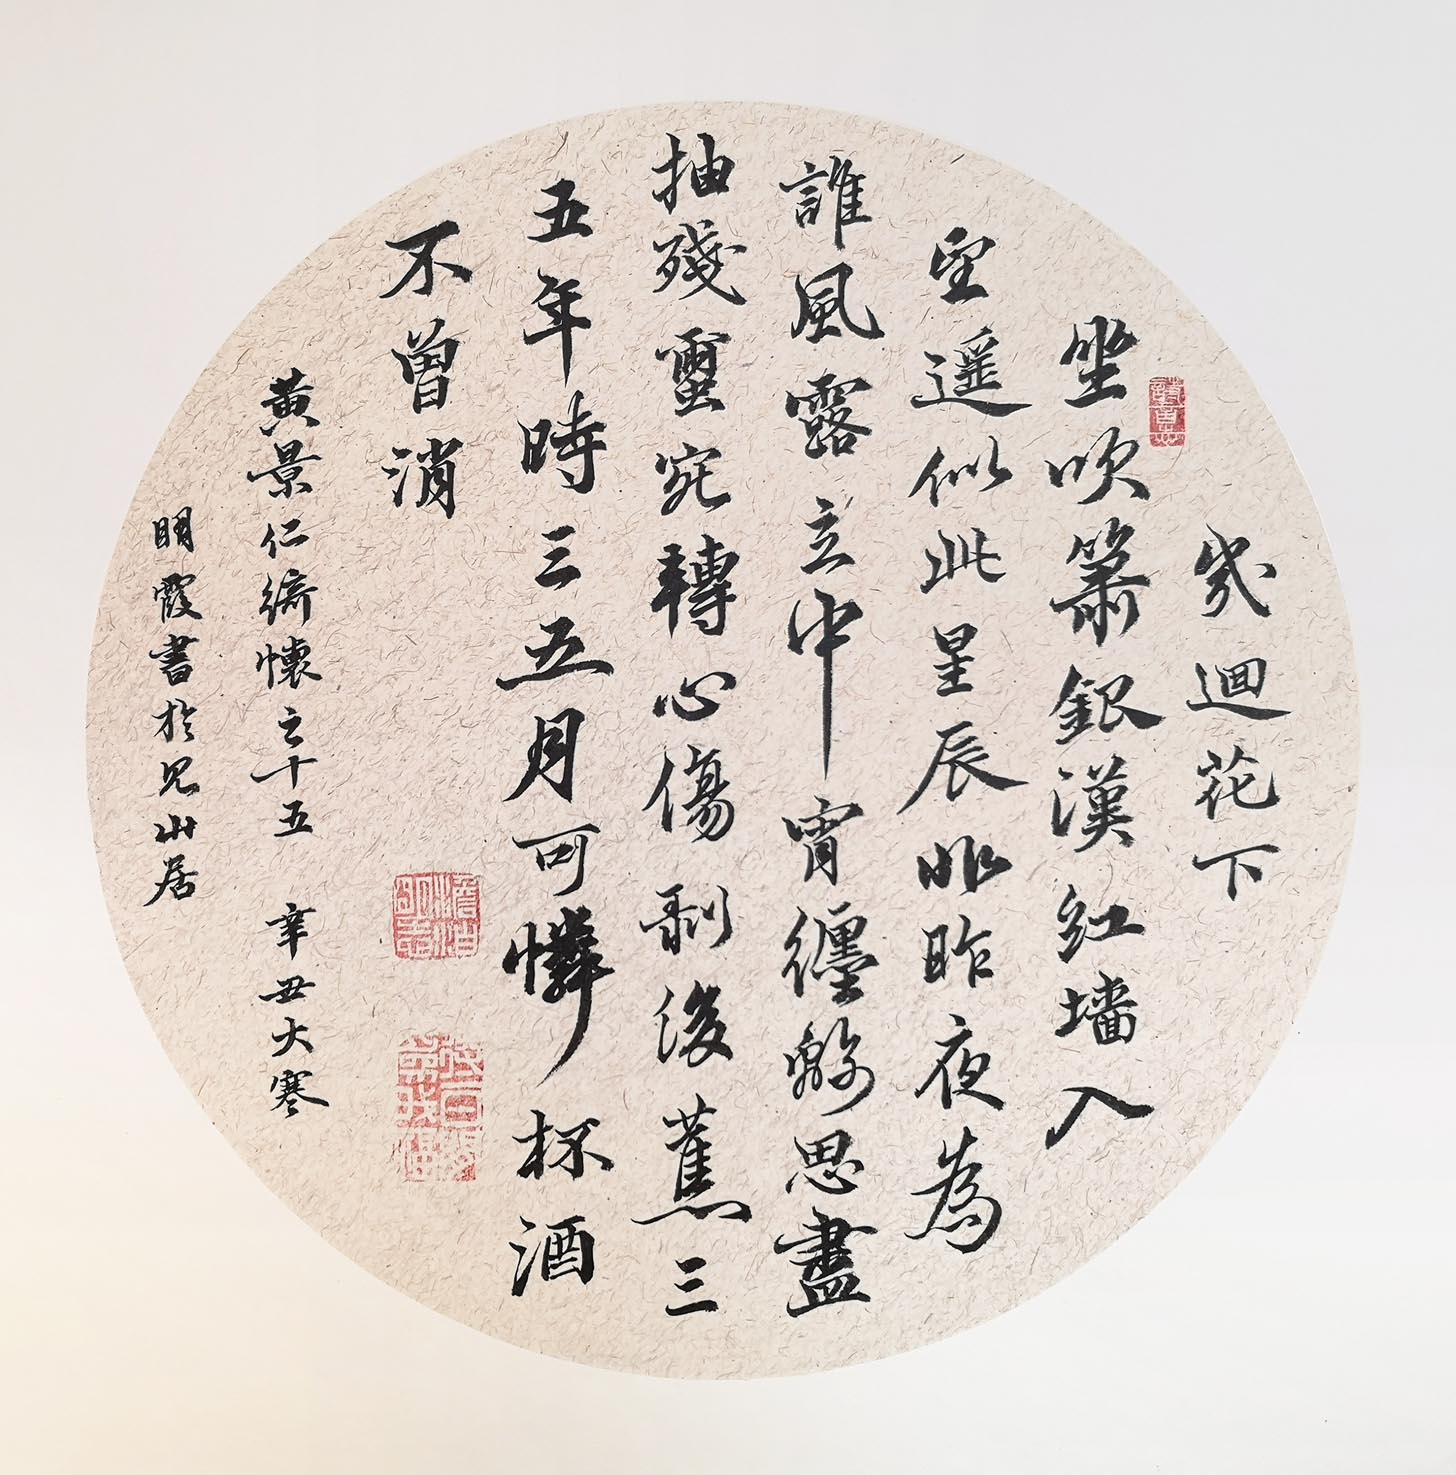 幾迴花下
坐吹簫銀漢紅墻入
望遥似此星辰非昨夜為
誰風露立中宵纏綿思盡
抽殘繭宛轉心傷剥後蕉三
五年時三五月可憐杯酒
不曾消
黄景仁綺懷之十五 辛丑大寒
明霞書於見山居